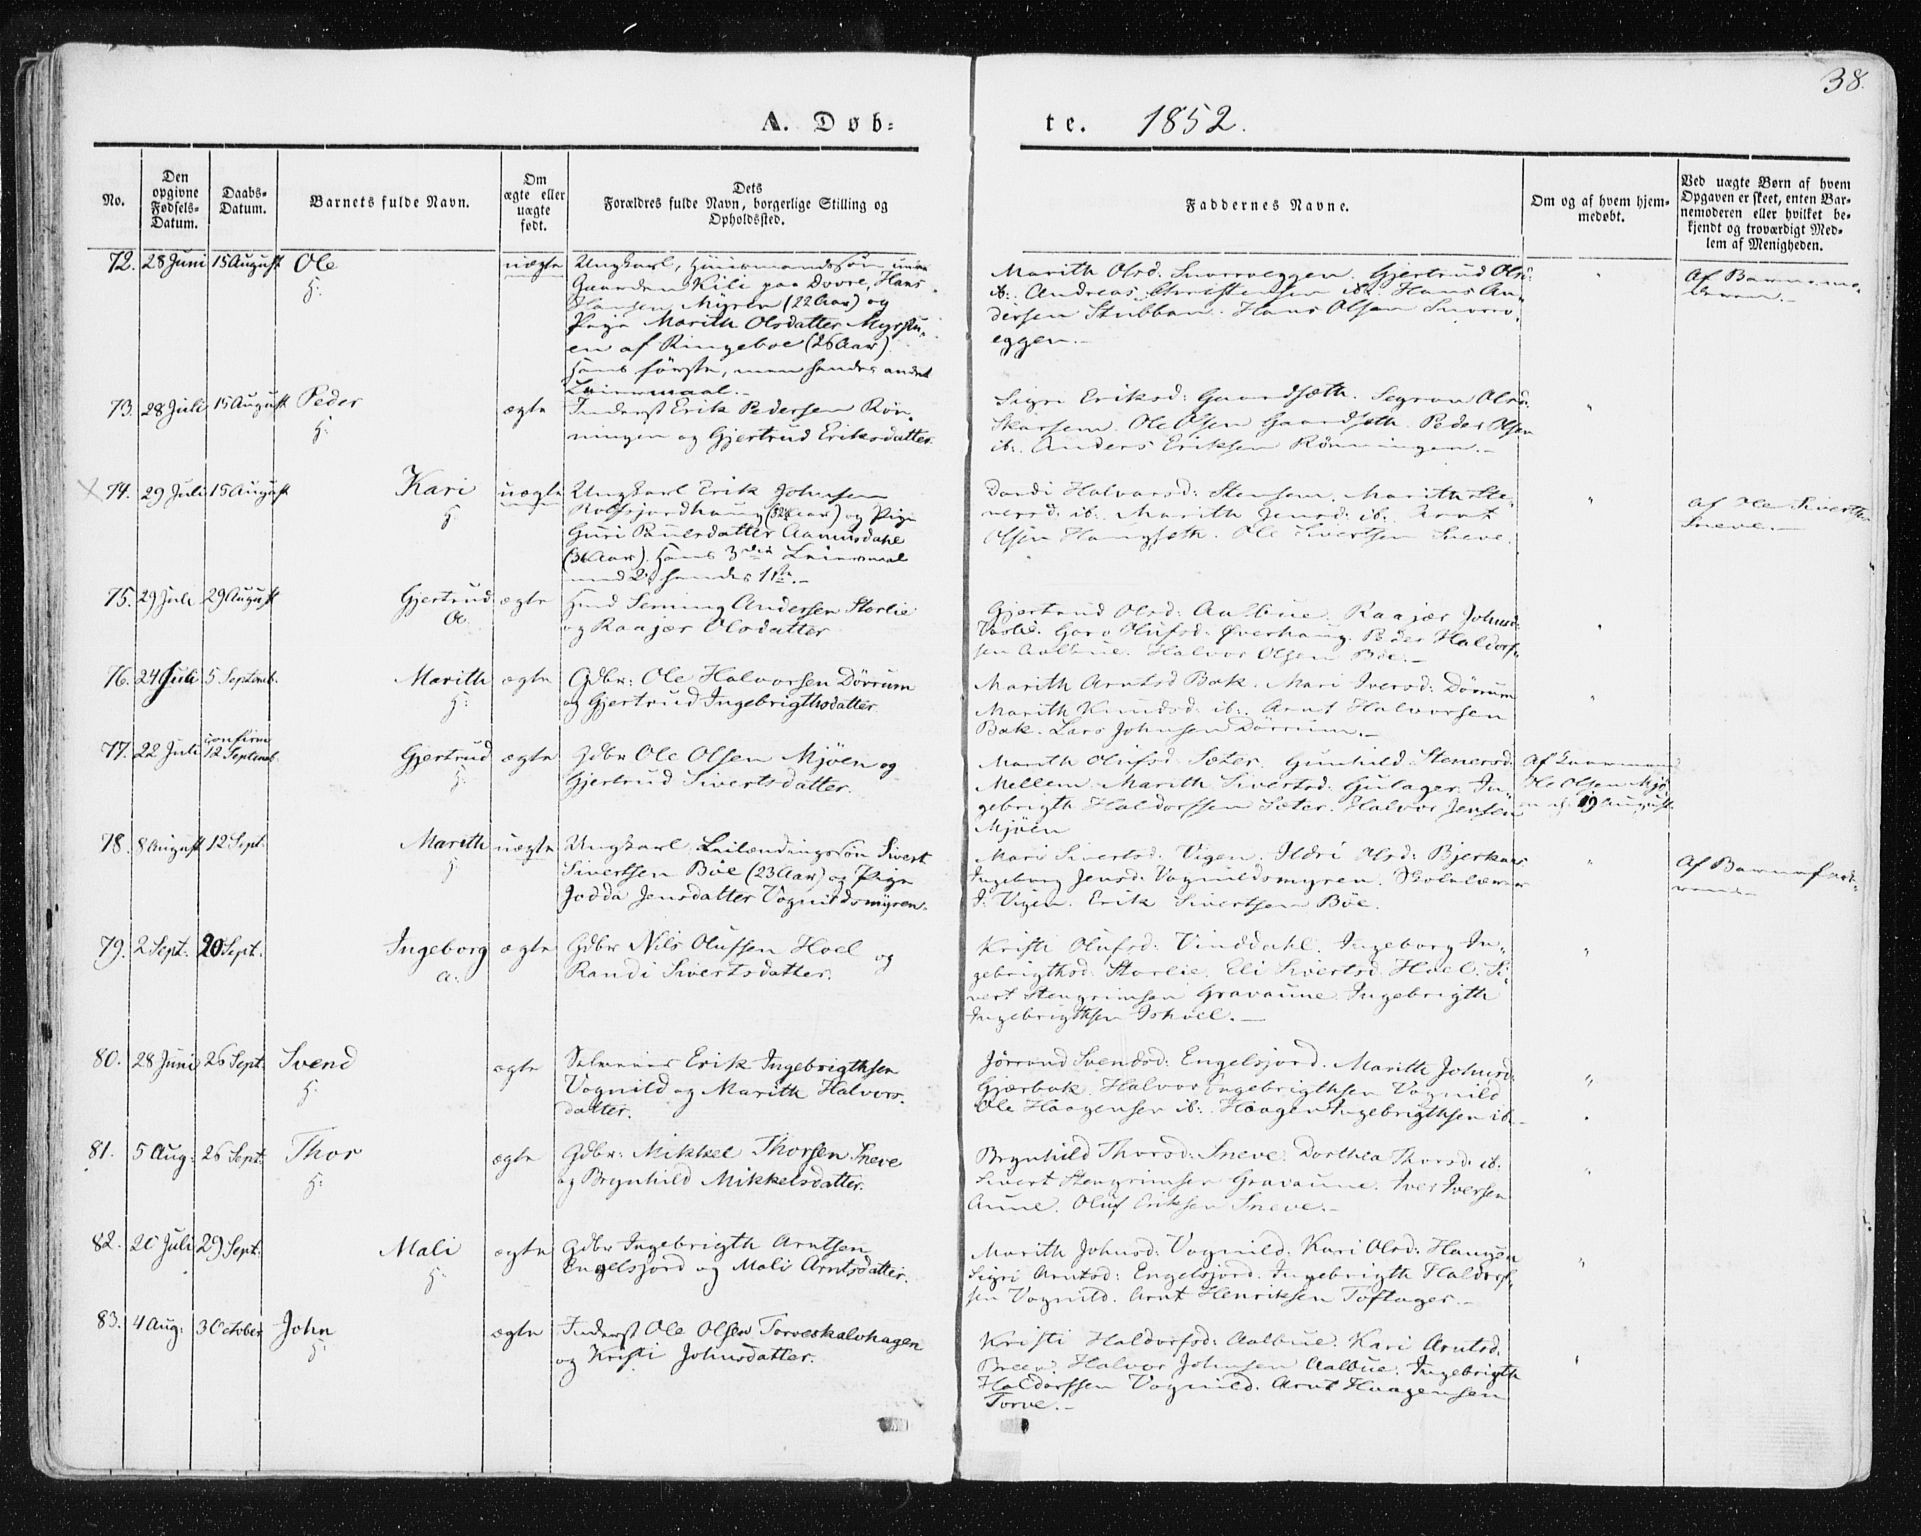 38.
A. Døb=
te. 1852.
No.
Den
opgivne
Fødsels-
Datum.
Daabs-
Datum.
Barnets fulde Navn.
Om
ægte eller
uægte
født.
Dets
Forældres fulde Navn, borgerlige Stilling og
Opholdssted.
Faddernes Navne.
Om og af hvem hjem-
medøbt.
Ved uægte Børn af hvem
Opgaven er skeet, enten Bar-
nemoderen eller hvilket be-
kjendt og troværdigt Med-
lem af Menigheden.
72. 28 Juni 15 August Ole uægte
H:
Ungkarl, Huusmandssøn under
Gaarden Kili paa Dovre, Hans
Hansen Myren (22 Aar) og
Pige Marith Olsdatter Myrstu-
en af Ringeboe (26 Aar).
Hans første, men hendes andet
Leiermaal.-
Marith Olsd. Snoroeggen. Gjertrud Olsd:
ib. Andreas Christensen ib. Hans An-
dersen Stubban. Hans Olsen Snoro-
eggen.-
Af Barnemo-
deren.-
73. 28 Juli 15 August Peder ægte
H:
Inderst Erik Pedersen Røn-
ningen og Gjertrud Eriksdatter.
Sigri Eriksd: Gaardsæth. Segron Olsd:
Skarsem. Ole Olsen Gaardseth. Peder Olsen
ib. Anders Eriksen Rønningen.-
74. 29 Juli 15 August Kari uægte
H:
Ungkarl Erik Johnsen
(32 Aar) og Pige
Guri Povelsdatter Aamusdahl
(36 Aar). Hans 3die Leiermaal
med 2, hendes 1ste.-
Dordi Halvorsd: Stensem. Marith Ste-
nersd: ib. Marith Jensd: ib. Arnt
Olsen Haugseth. Ole Sivertsen Sneve.
Af Ole Sivertsen
Sneve.-
75. 29 Juli 29 August Gjertrud ægte
A.
Hmd Sening Andersen Storlie
og Raajær Olsdatter
Gjertrud Olsd: Aalbue. Raajær Johnsd:
Goro Olufsd: Øverhaug. Peder Haldors-
sen Aalbue. Halvor Olsen Böe.-
76. 24 Juli 5 Septemb. Marith ægte
H:
Gdbr: Ole Halvorsen Dörrum
og Gjertrud Ingebrigthsdatter.
Marith Arntsd Bak. Mari Iversd: Dörrum
Marith Knudsd: ib. Arnt Halvorsen
Bak. Lars Johnsen Dörrum.-
77. 22 Juli confirm 12 Septemb. Gjertrud ægte
H:
Gdbr Ole Olsen Mjöen og
Gjertrud Sivertsdatter.
Marith Olufsd: Sæter. Gunhild Stenersd:
Mellem. Marith Sivertsd: Gulager. In-
gebrigth Haldorssen Sæter. Halvor Jensen
Mjöen
Ole Olsen Mjö-
en d. 19 August.
78. 8 August 12 Sept. Marith uægte
H:
Ungkarl, Leilændingssøn Sivert
Sivertsen Böe (23 Aar) og Pige
Jodda Jensdatter Vognildsmyren.
Mari Sivertsd: Vigen. Ildri Olsd: Bjerkaas
Ingeborg Jensd: Vognildsmyren. Skolelærer
J. Vigen. Erik Sivertsen Böe.
Af Barnefade-
ren.-
79. 2 Sept. 20 Sept. Ingeborg ægte
A:
Gdbr Nils Olufsen Hoel og
Randi Sivertsdatter.
Kristi Olufsd: Vinddahl. Ingeborg In-
gebrigthsd: Storlie. Eli Sivertsd. Hoel. Si-
vert Stengrimsen Gravaune. Ingebrigth
Ingebrigthsen Ishoel.-
80. 28 Juni 26 Sept. Svend ægte
H:
Erik Ingebrigthsen
Vognild og Marith Halvors-
datter.
Jörrand Svendsd: Engelsjord. Marith Johnsd:
Gjærbak. Halvor Ingebrigthsen Vognild
Ole Haagensen ib. Haagen Ingebrigthsen ib.-
81. 5 Aug: 26 Sept. Thor ægte
H:
Gdbr: Mikkel Thorsen Sneve
og Brynhild Mikkelsdatter.
Brynhild Thorsd: Sneve. Dorthea Thorsd: ib.
Sivert Stengrimsen Gravaune. Iver Iversen
Aune. Oluf Eriksen Sneve.-
82. 20 Juli 29 Sept. Mali ægte
H:
Gdbr Ingebrigth Arntsen
Engelsjord og Mali Arntsdatter.
Marith Johnsd: Vognild. Kari Olsd: Haugen
Sigri Arntsd: Engelsjord. Ingebrigth Haldors-
sen Vognild. Arnt Henriksen Toftager.-
83. 4 Aug: 3 October John ægte
H:
Inderst Ole Olsen Torveskalvhagen
og Kristi Johnsdatter.
Kristi Haldorsd: Aalbue. Kari Arntsd.
Breen. Halvor Johnsen Aalbue. Ingebrigth
Haldorssen Vognild. Arnt Haagensen
Torve.-